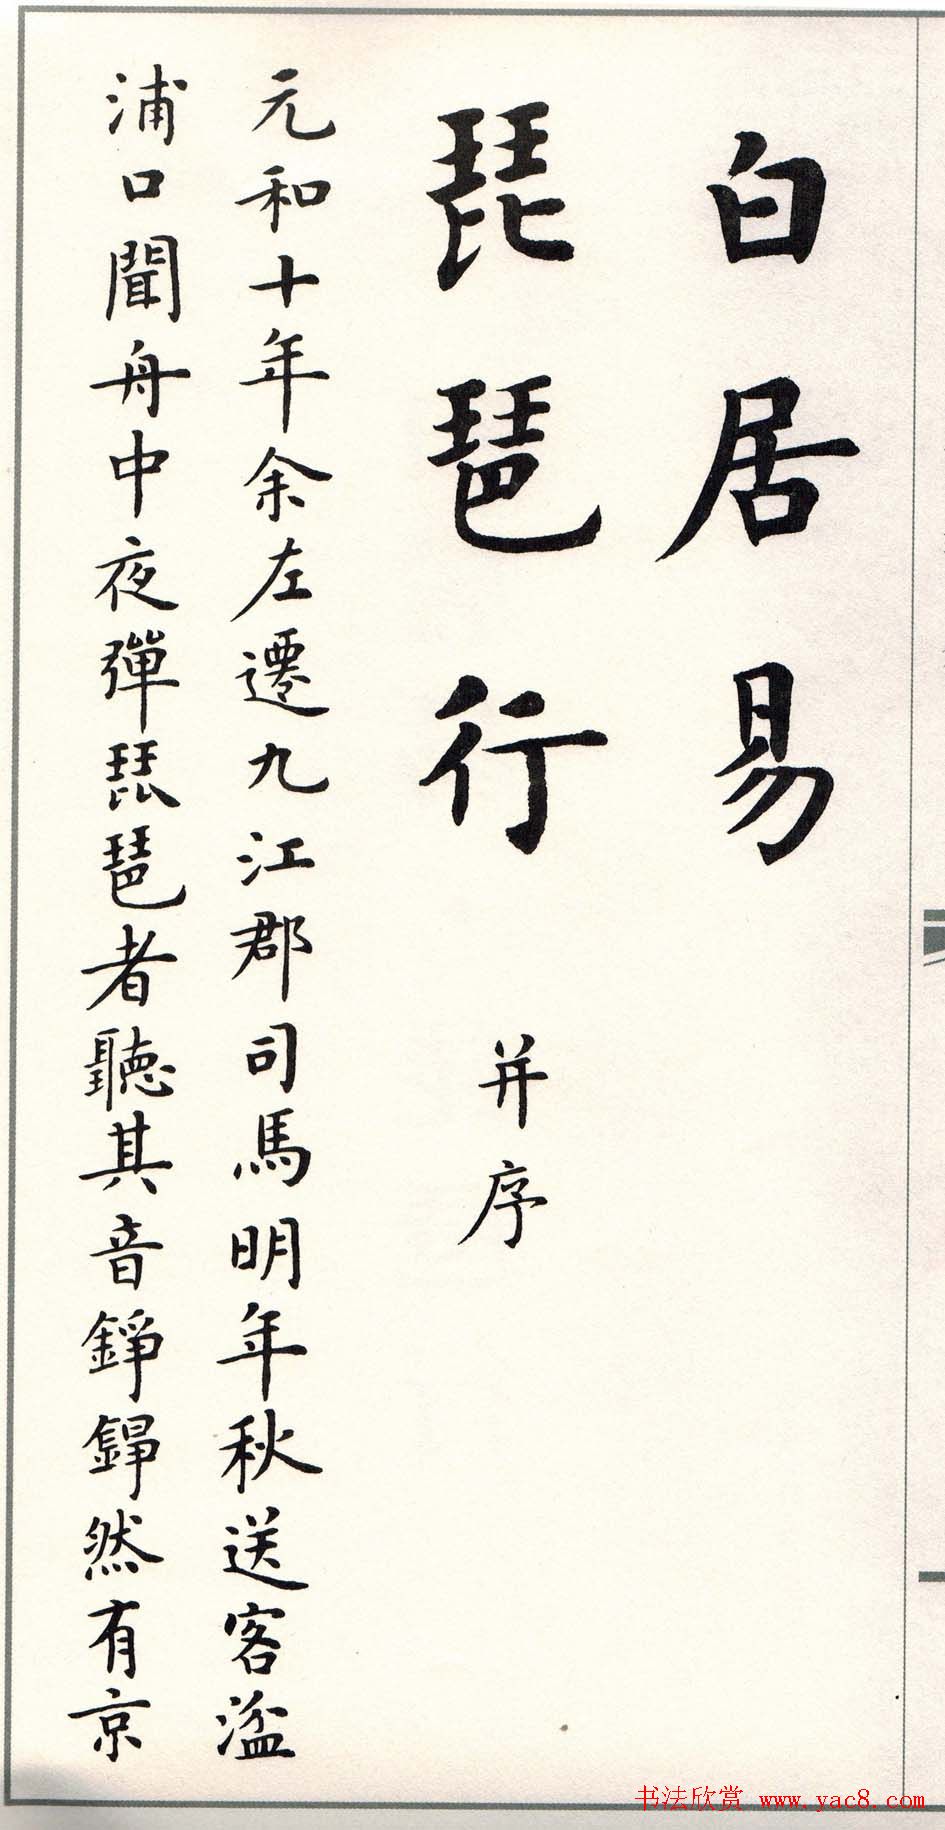 白居易
琵琶行 并序
元和十年余左遷九江郡司馬明年秋送客湓
浦口聞舟中夜彈琵琶者聽其音錚錚然有京
书法欣赏 www.yac8.com